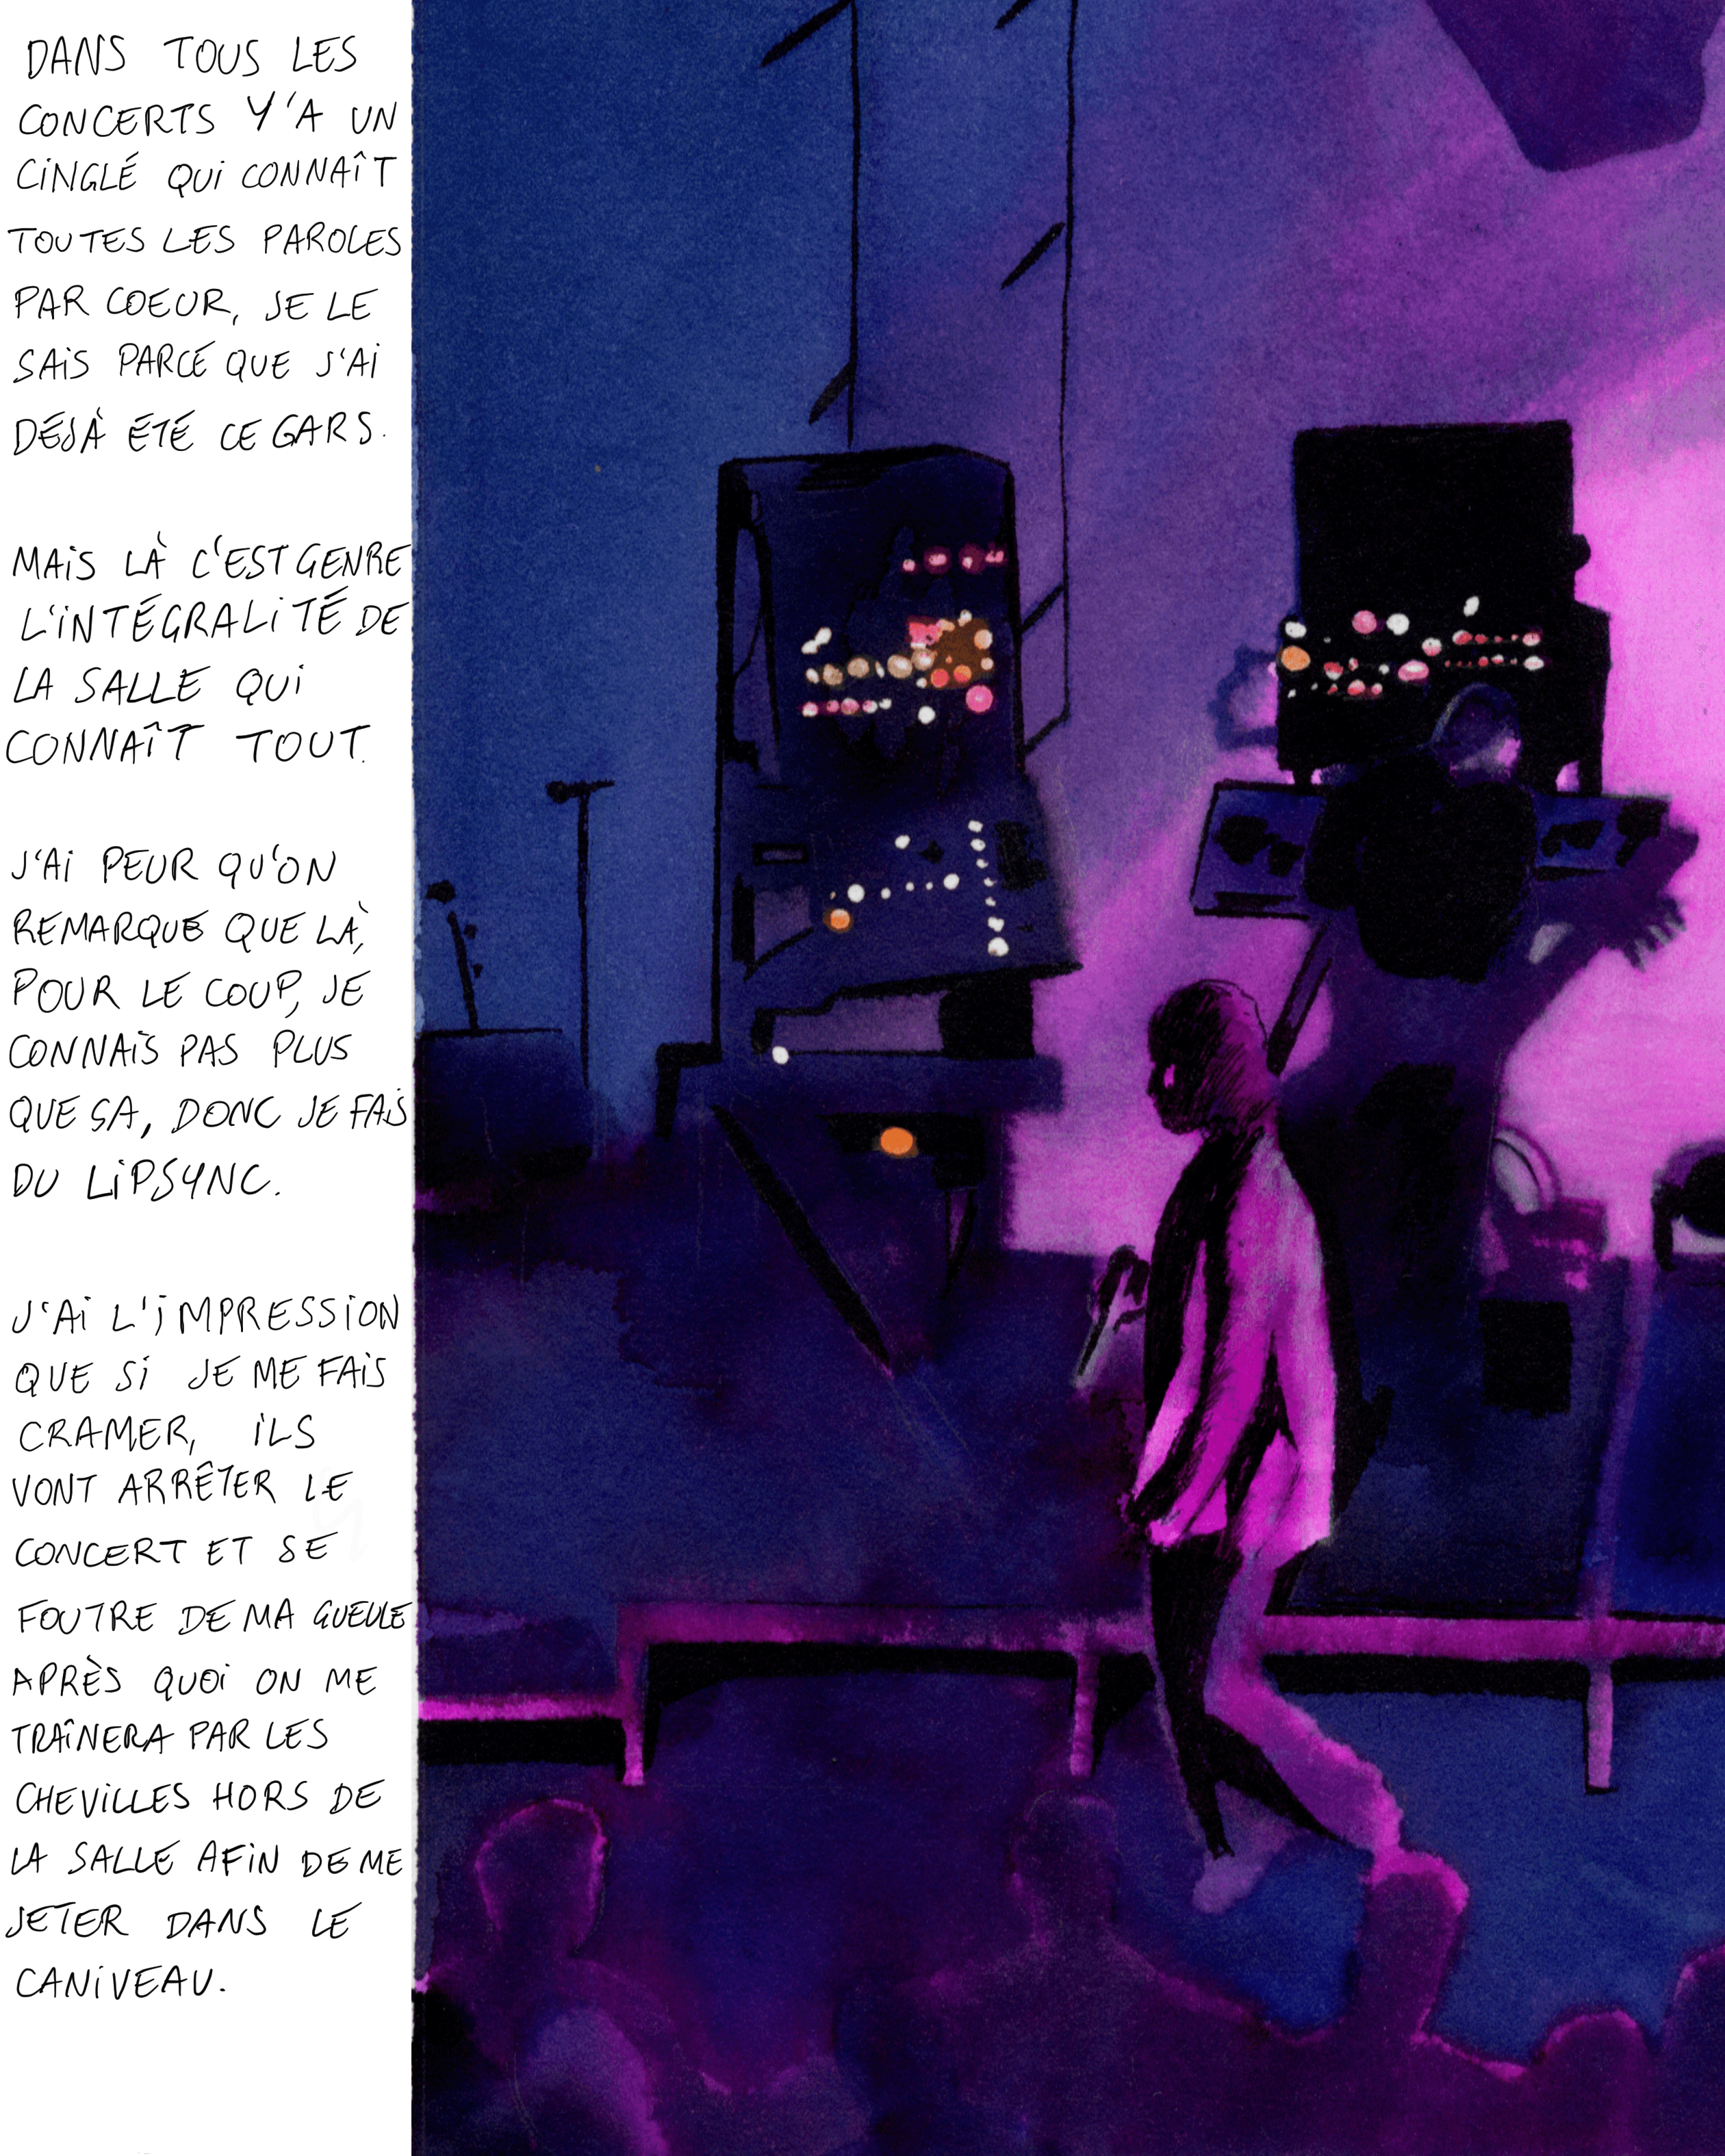 DANS TOUS LES
CONCERTS Y'A UN
CINGLÉ QUI CONNAÎT
TOUTES LES PAROLES
PAR COEUR, JE LE
SAIS PARCE QUE J'AI
DÉJÀ ÉTÉ CE GARS.
MAIS LÀ C'EST GENRE
L'INTÉGRALITÉ DE
LA SALLE QUI
CONNAÎT TOUT.
J'AI PEUR QU'ON
REMARQUE QUE LÀ,
POUR LE COUP, JE
CONNAIS PAS PLUS
QUE SA, DONC JE FAIS
DU LIPSYNC.
J'AI L'IMPRESSION
QUE SI JE ME FAIS
CRAMER, ILS
VONT ARRÊTER LE
CONCERT ET SE
FOUTRE DE MA GUEULE
APRÈS QUOI ON ME
TRAÎNERA PAR LES
CHEVILLES HORS DE
LA SALLE AFIN DE ME
JETER DANS LE
CANIVEAU.